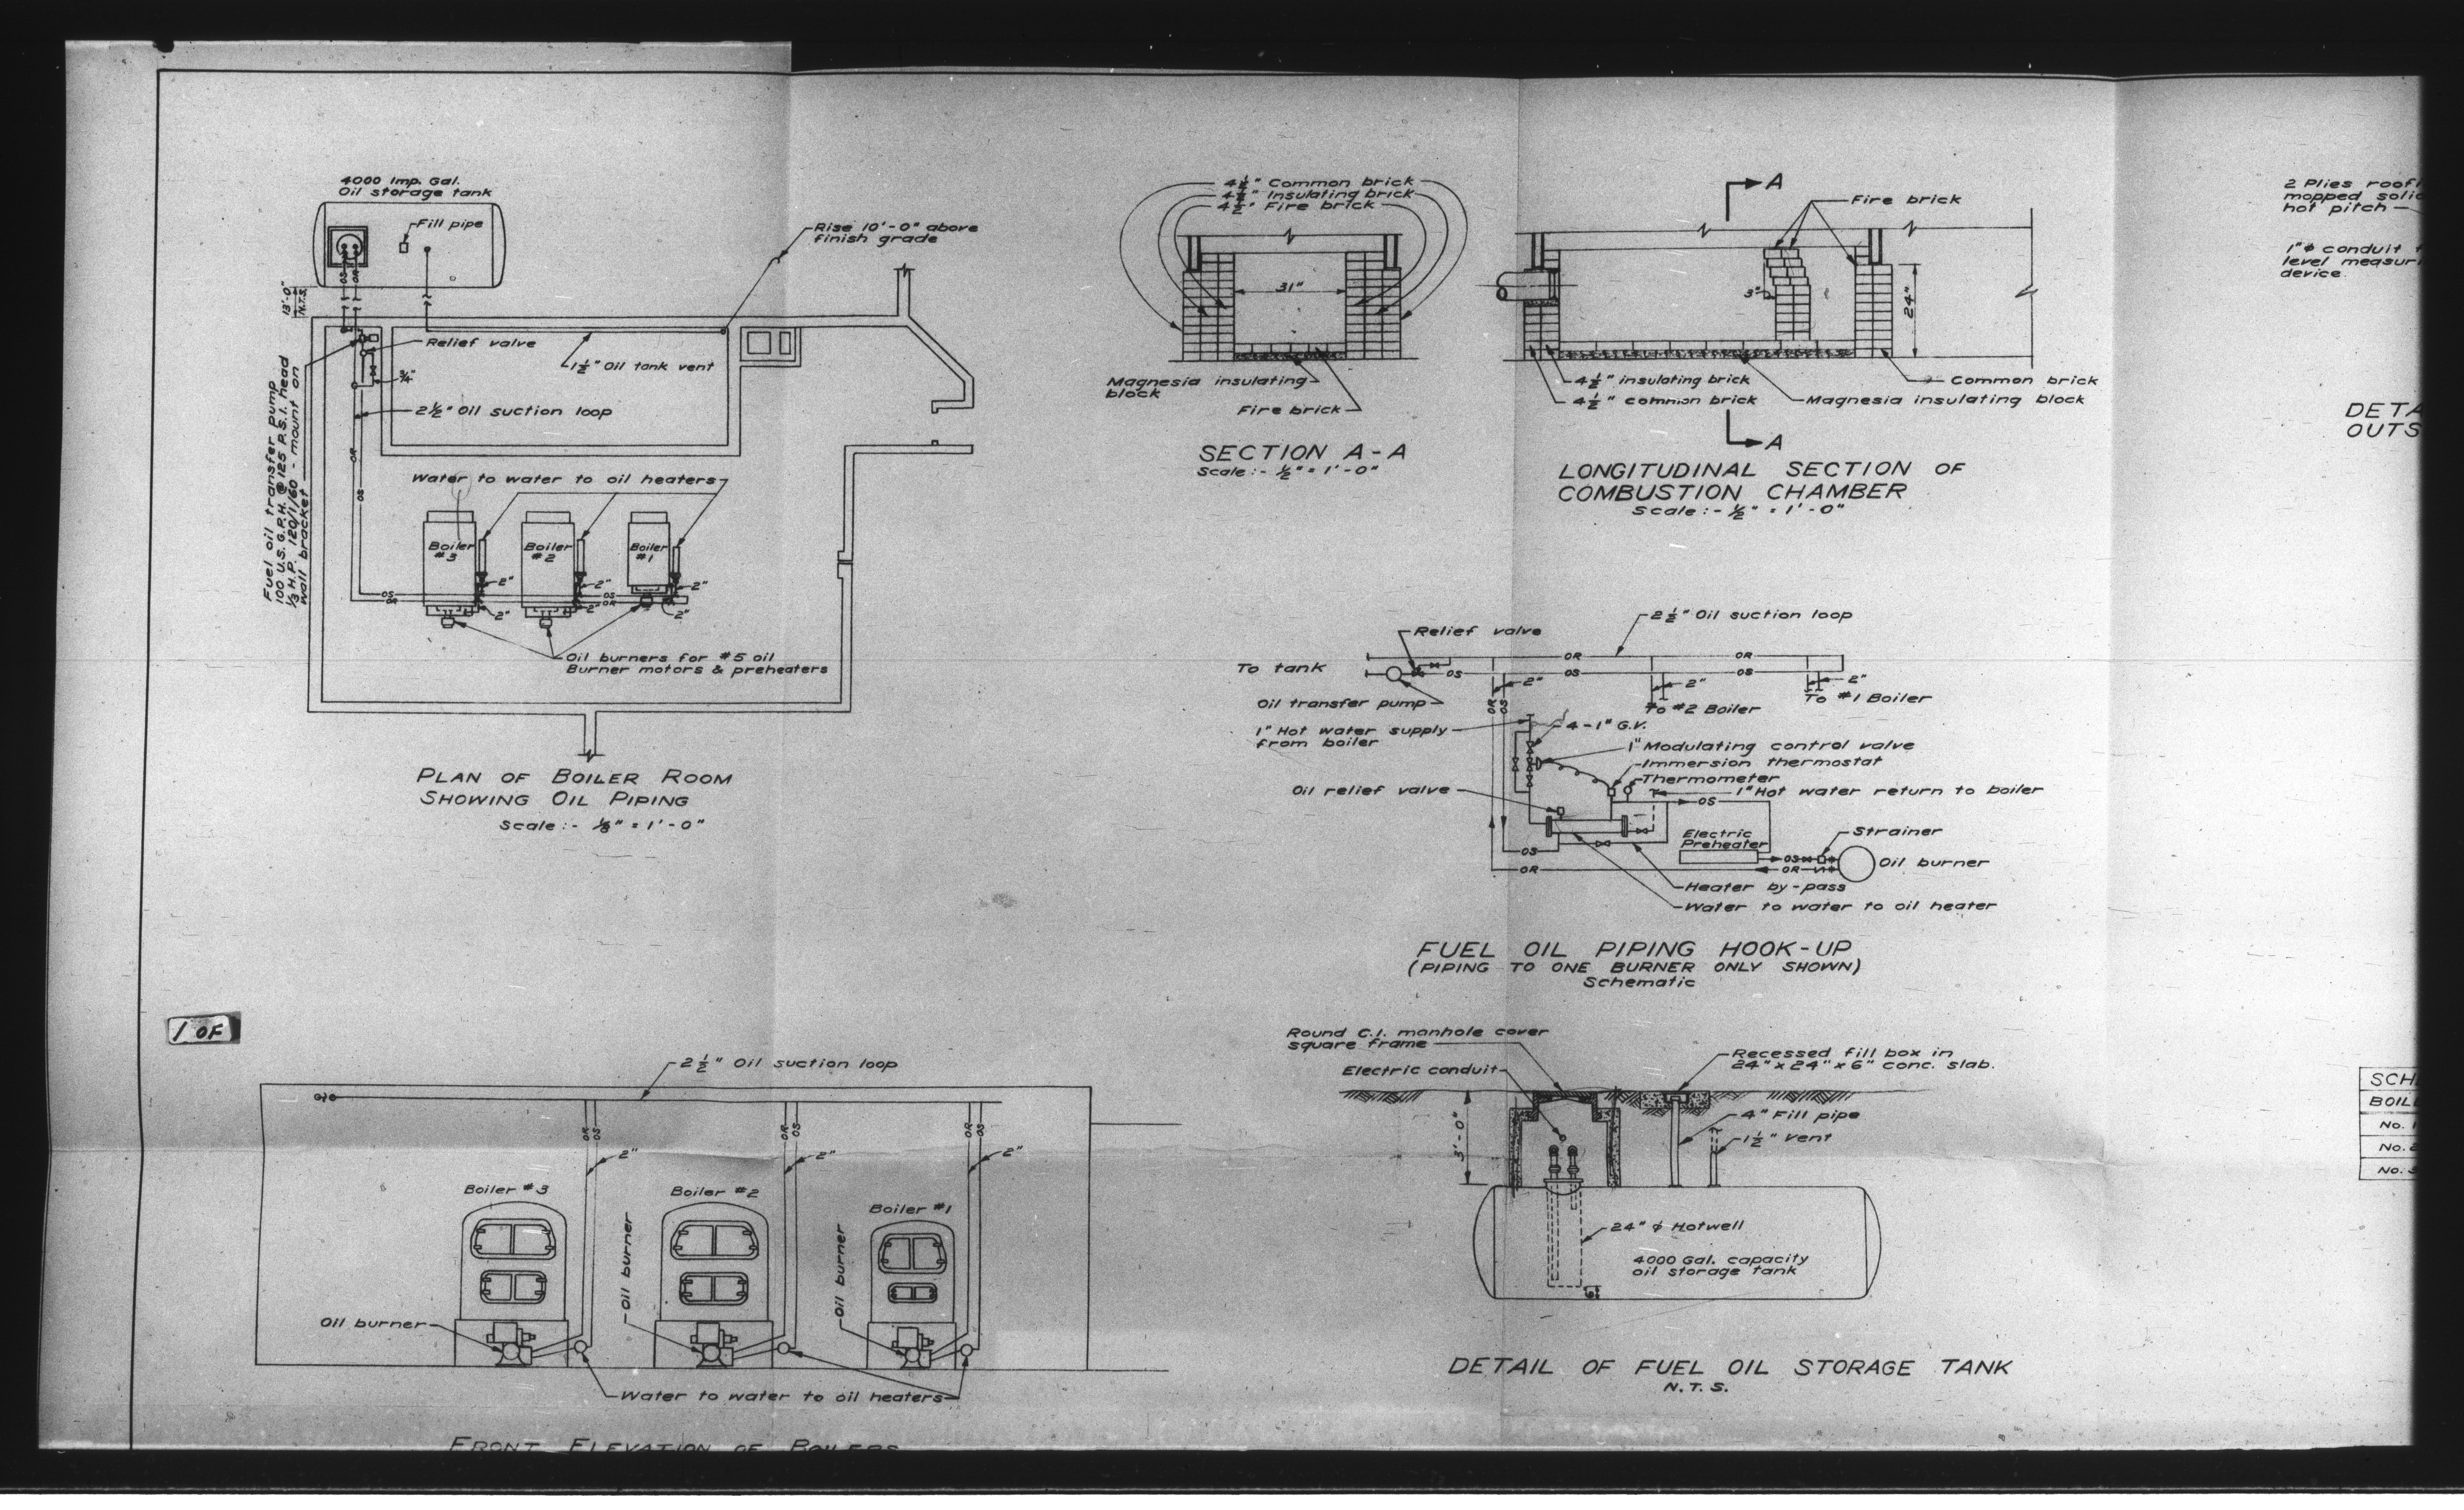 4000 Imp. Gal.
Oil storage tank
Fill pipe
OS
OR
13'-0"
N.T.S.
Rise 10'-0" above
finish grade
Relief valve
1½" Oil tank vent
¾"
2½" Oil suction loop
Fuel oil transfer pump
100 U.S.G.P.H. @ 125 P.S.I. head
⅓ H.P. 120/1/60 - mount on
wall bracket
OR
OS
Water to water to oil heaters
Boiler
#3
Boiler
#2
Boiler
#1
2"
2"
2"
OS
OR
OS
OR
2"
2"
2"
Oil burners for #5 oil
Burner motors & preheaters
PLAN OF BOILER ROOM
SHOWING OIL PIPING
Scale:- ⅛" = 1'-0"
4½" Common brick
4½" Insulating brick
4½" Fire brick
31"
Magnesia insulating
block
Fire brick
SECTION A-A
Scale:- ½" = 1'-0"
A
Fire brick
3"
24"
4½" insulating brick
4½" common brick
Common brick
Magnesia insulating block
A
LONGITUDINAL SECTION OF
COMBUSTION CHAMBER
Scale:- ½" = 1'-0"
2 Plies roof
mopped solid
hot pitch
1"ϕ conduit
level measur
device
DETA
OUTS
2½" Oil suction loop
Relief valve
To tank
OR
OR
OS
OS
OS
2"
2"
2"
Oil transfer pump
To #1 Boiler
To #2 Boiler
OR
OS
1" Hot water supply
from boiler
4-1" G.V.
1" Modulating control valve
Immersion thermostat
Thermometer
Oil relief valve
1" Hot water return to boiler
OS
Electric
Preheater
Strainer
OS
OS
Oil burner
OR
OR
Heater by-pass
Water to water to oil heater
FUEL OIL PIPING HOOK-UP
(PIPING TO ONE BURNER ONLY SHOWN)
Schematic
1 OF
2½" Oil suction loop
OR
OS
OR
OS
OR
OS
2"
2"
2"
Boiler #3
Boiler #2
Boiler #1
Oil burner
Oil burner
Oil burner
Water to water to oil heaters
FRONT ELEVATION OF BOILERS
Round C.I. manhole cover
square frame
Electric conduit
Recessed fill box in
24" x 24" x 6" conc. slab.
3'-0"
4" Fill pipe
1½" Vent
24" ϕ Hotwell
4000 Gal. capacity
oil storage tank
6"
DETAIL OF FUEL OIL STORAGE TANK
N.T.S.
SCH
BOIL
No. 1
No. 2
No. 3